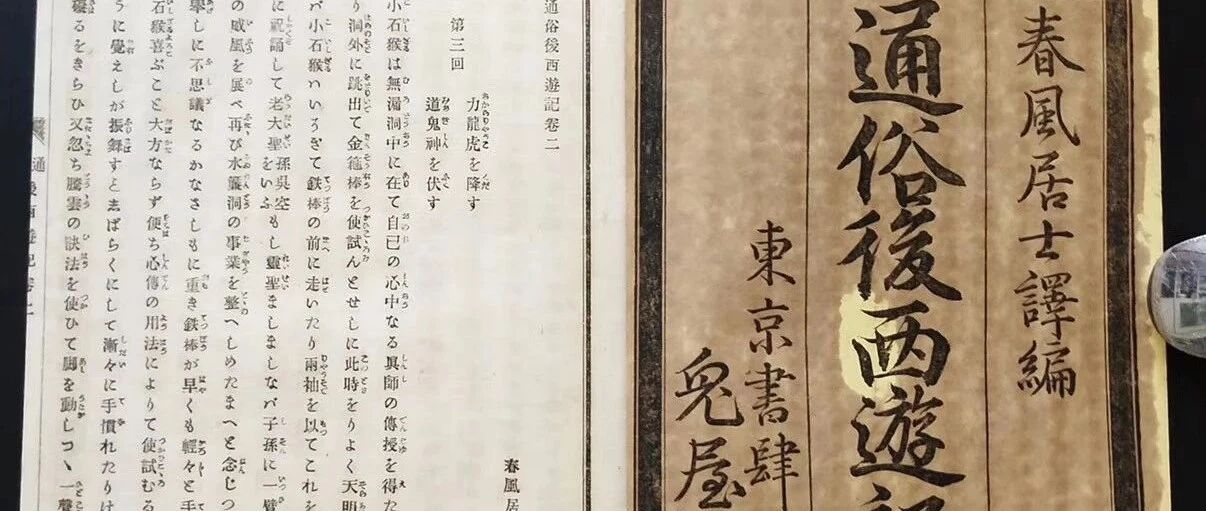 春風居士譯編
通俗後西遊
東京書肆
兔屋
通俗後西遊記卷二
春風居
第三回
力龍虎を降す
道鬼神を伏す
小石猴は無漏洞中に在て自己の心中なる眞師の傳授を得た
り洞外に跳出て金箍棒を使試んとせしに此時をりよく天明
バ小石猴ハいそぎて鉄棒の前に走いたり兩袖を以てこれを
に祝誦して老大聖孫悟空をいふもし靈聖ましましなバ子孫に一臂
の威風を展べ再び水簾洞の事業を整へしめたまへと念じつ
擧しに不思議なるかなさしもに重き鉄棒が早くも輕々と手
石猴喜ぶこと大方ならず便ち心傳の用法によりて使試むる
うに覺えしが振舞すと志ばらくにして漸々に手慣れたりけ
礙るをきらひ又忽ち騰雲の訣法を使ひて脚を動しつヽ一聲